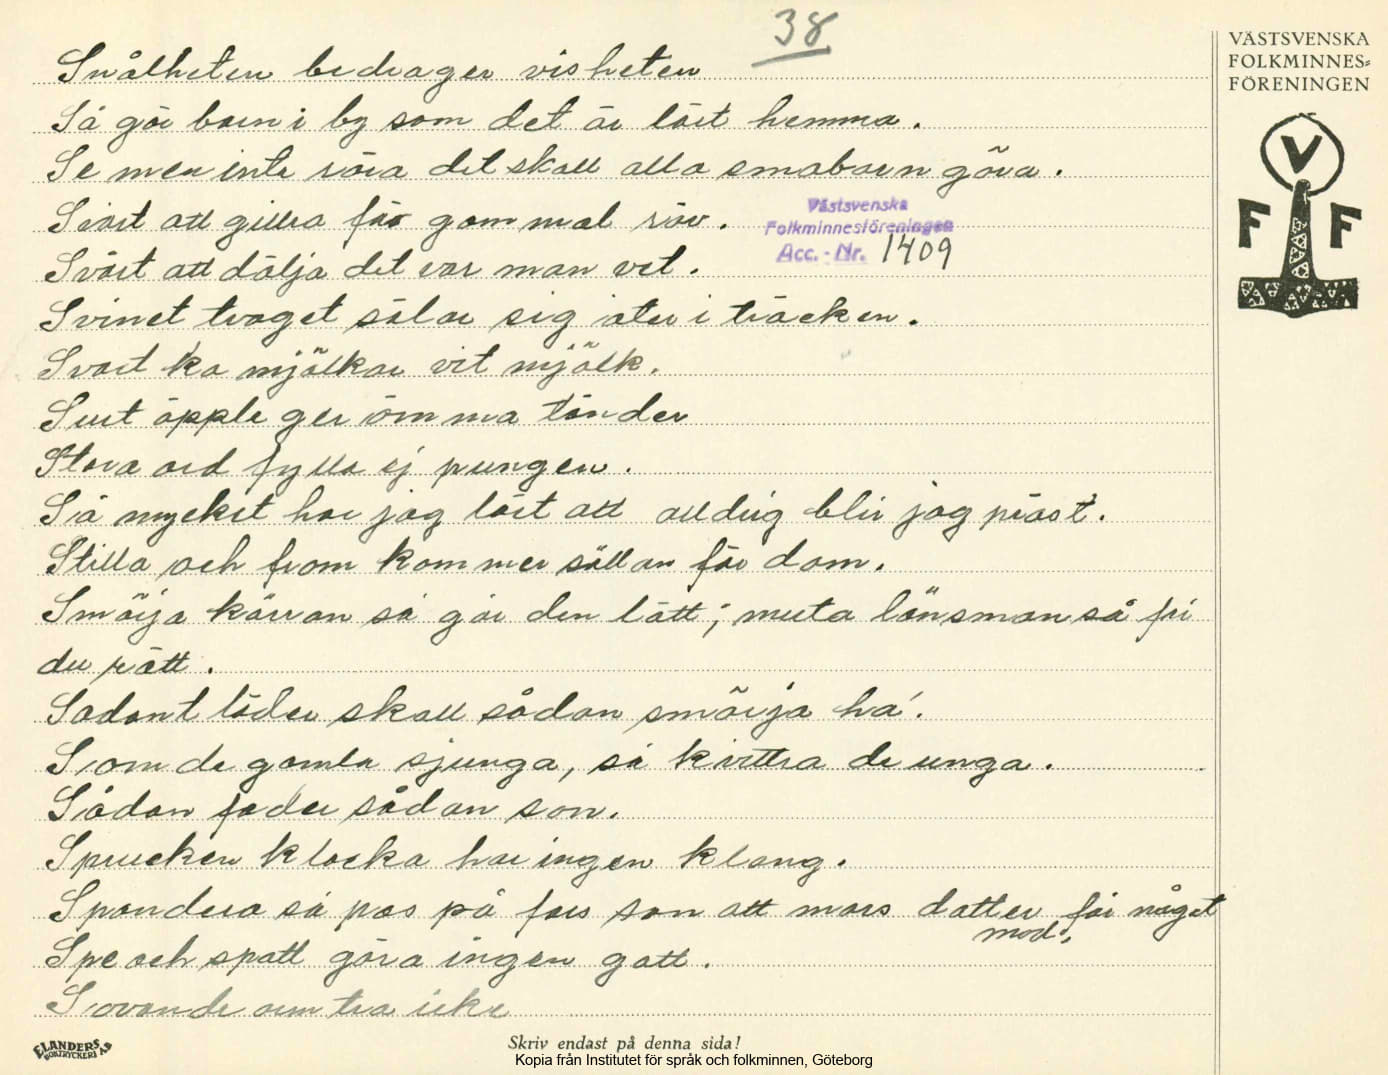 38
VÄSTSVENSKA
FOLKMINNES-
FÖRENINGEN
V
F F
Snålheten bedrager visheten
Så gör barn i by som det är lärt hemma.
Se men inte röra det skall alla småbarn göra.
Svårt att gillra för gammal räv.
Västsvenska
Folkminnesföreningen
Acc.-Nr. 1409
Svårt att dölja det var man vet.
Svinet tvaget sölar sig åter i träcken.
Svart ko mjölkar vit mjölk.
Surt äpple ger ömma tänder
Stora ord fylla ej pungen.
Så mycket har jag lärt att alldrig blir jag präst.
Stilla och from kommer sällan för dom.
Smörja kärran så går den lätt; muta länsman så får
du rätt.
Sådant läder skall sådan smörja ha.
Som de gamla sjunga, så kvittra de unga.
Sådan fader sådan son.
Sprucken klocka har ingen klang.
Spendera så pas på fars son att mors dotter får något
med.
Spe och spott göra ingen gott.
Sovande icke
ELANDERS
BOKTRYCKERI AB
Skriv endast på denna sida!
Kopia från Institutet för språk och folkminnen, Göteborg